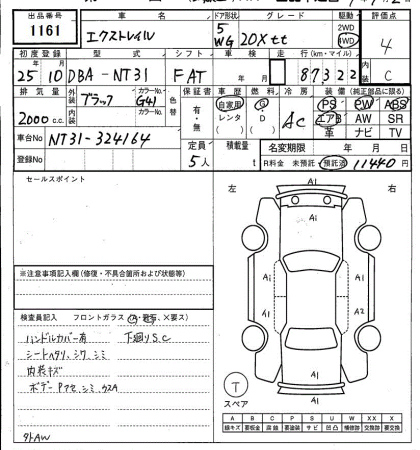 出品番号 車名 ドア形状 グレード 駆動 評価点
1161 エクストレイル 5 WG 20Xtt 2WD 4WD 4
初度登録 型式 シフト 車検 走行(km・マイル) 内装
25年 10月 DBA-NT31 FAT 年 月 87322 C
排気量 外装 カラーNo. 色替 保証書 車歴 燃料 冷房 装備(純正部品に限る)
2000c.c. ブラック G41 有・無 自家用 レンタ ( ) G D ( ) AC PS PW ABS
内装 カラーNo. エアB AW SR
革 ナビ TV
車台No NT31-324164 定員 積載量 名変期限 年 月 日
登録No 5人 t R料金 未預託・預託済 11440円
セールスポイント
左 右
※注意事項記入欄(修復・不具合箇所および状態等)
検査員記入 フロントガラス (A・飛石、X要ス)
ハンドルカバー有 下廻りS.C
シートヘタリ、シワ、シミ
内装キズ
ボデーPアセ、シミ、ケスA
外AW
A1
Ai
Ai
Ai
A1
A2
A1
A1
A1
T
スペア
A B C P S U W X XX
線キズ 要板金 腐蝕 要塗装 サビ 凹凸 補修跡 交換跡 要交換